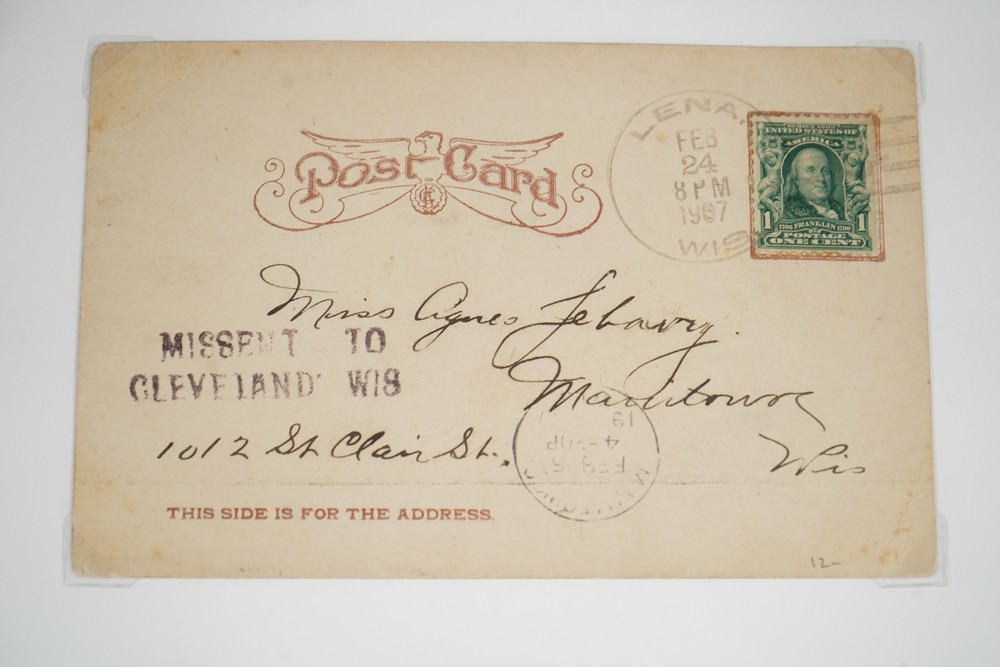 Post Card
LENA,
FEB
24
8 PM
1907
WIS
SERIES 1902
UNITED STATES OF
AMERICA
1 1706 FRANKLIN 1790 1
POSTAGE
ONE CENT
Miss Agnes
MISSENT TO
CLEVELAND WIS
1012 St Clair St.
Wis
19
4-30P
FEB
THIS SIDE IS FOR THE ADDRESS.
12-